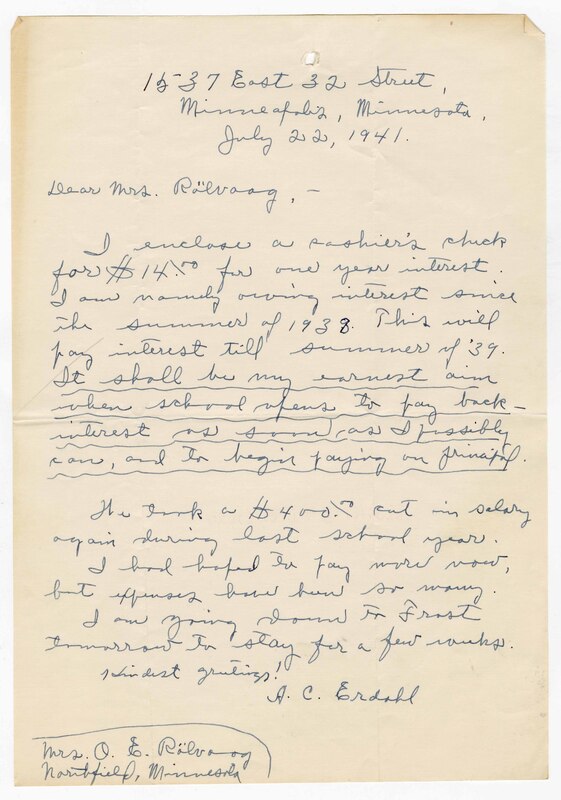 1537 East 32 Street,
Minneapolis, Minnesota,
July 22, 1941.
Dear Mrs. Rölvaag, –
I enclose a cashier's check
for $14.00 for one year interest.
I am namely owing interest since
the summer of 1938. This will
pay interest till summer of '39.
It shall be my earnest aim
when school opens to pay back-
interest as soon as I possibly
can, and to begin paying on principal.
We took a $400.00 cut in salary
again during last school year.
I had hoped to pay more now,
but expenses have been so many.
I am going down to Frost
tomorrow to stay for a few weeks.
Kindest greetings!
A. C. Erdahl
Mrs. O. E. Rölvaag
Northfield, Minnesota